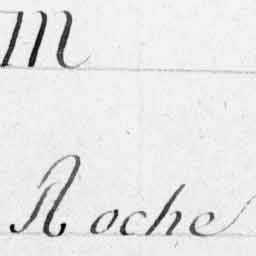 m
Roche